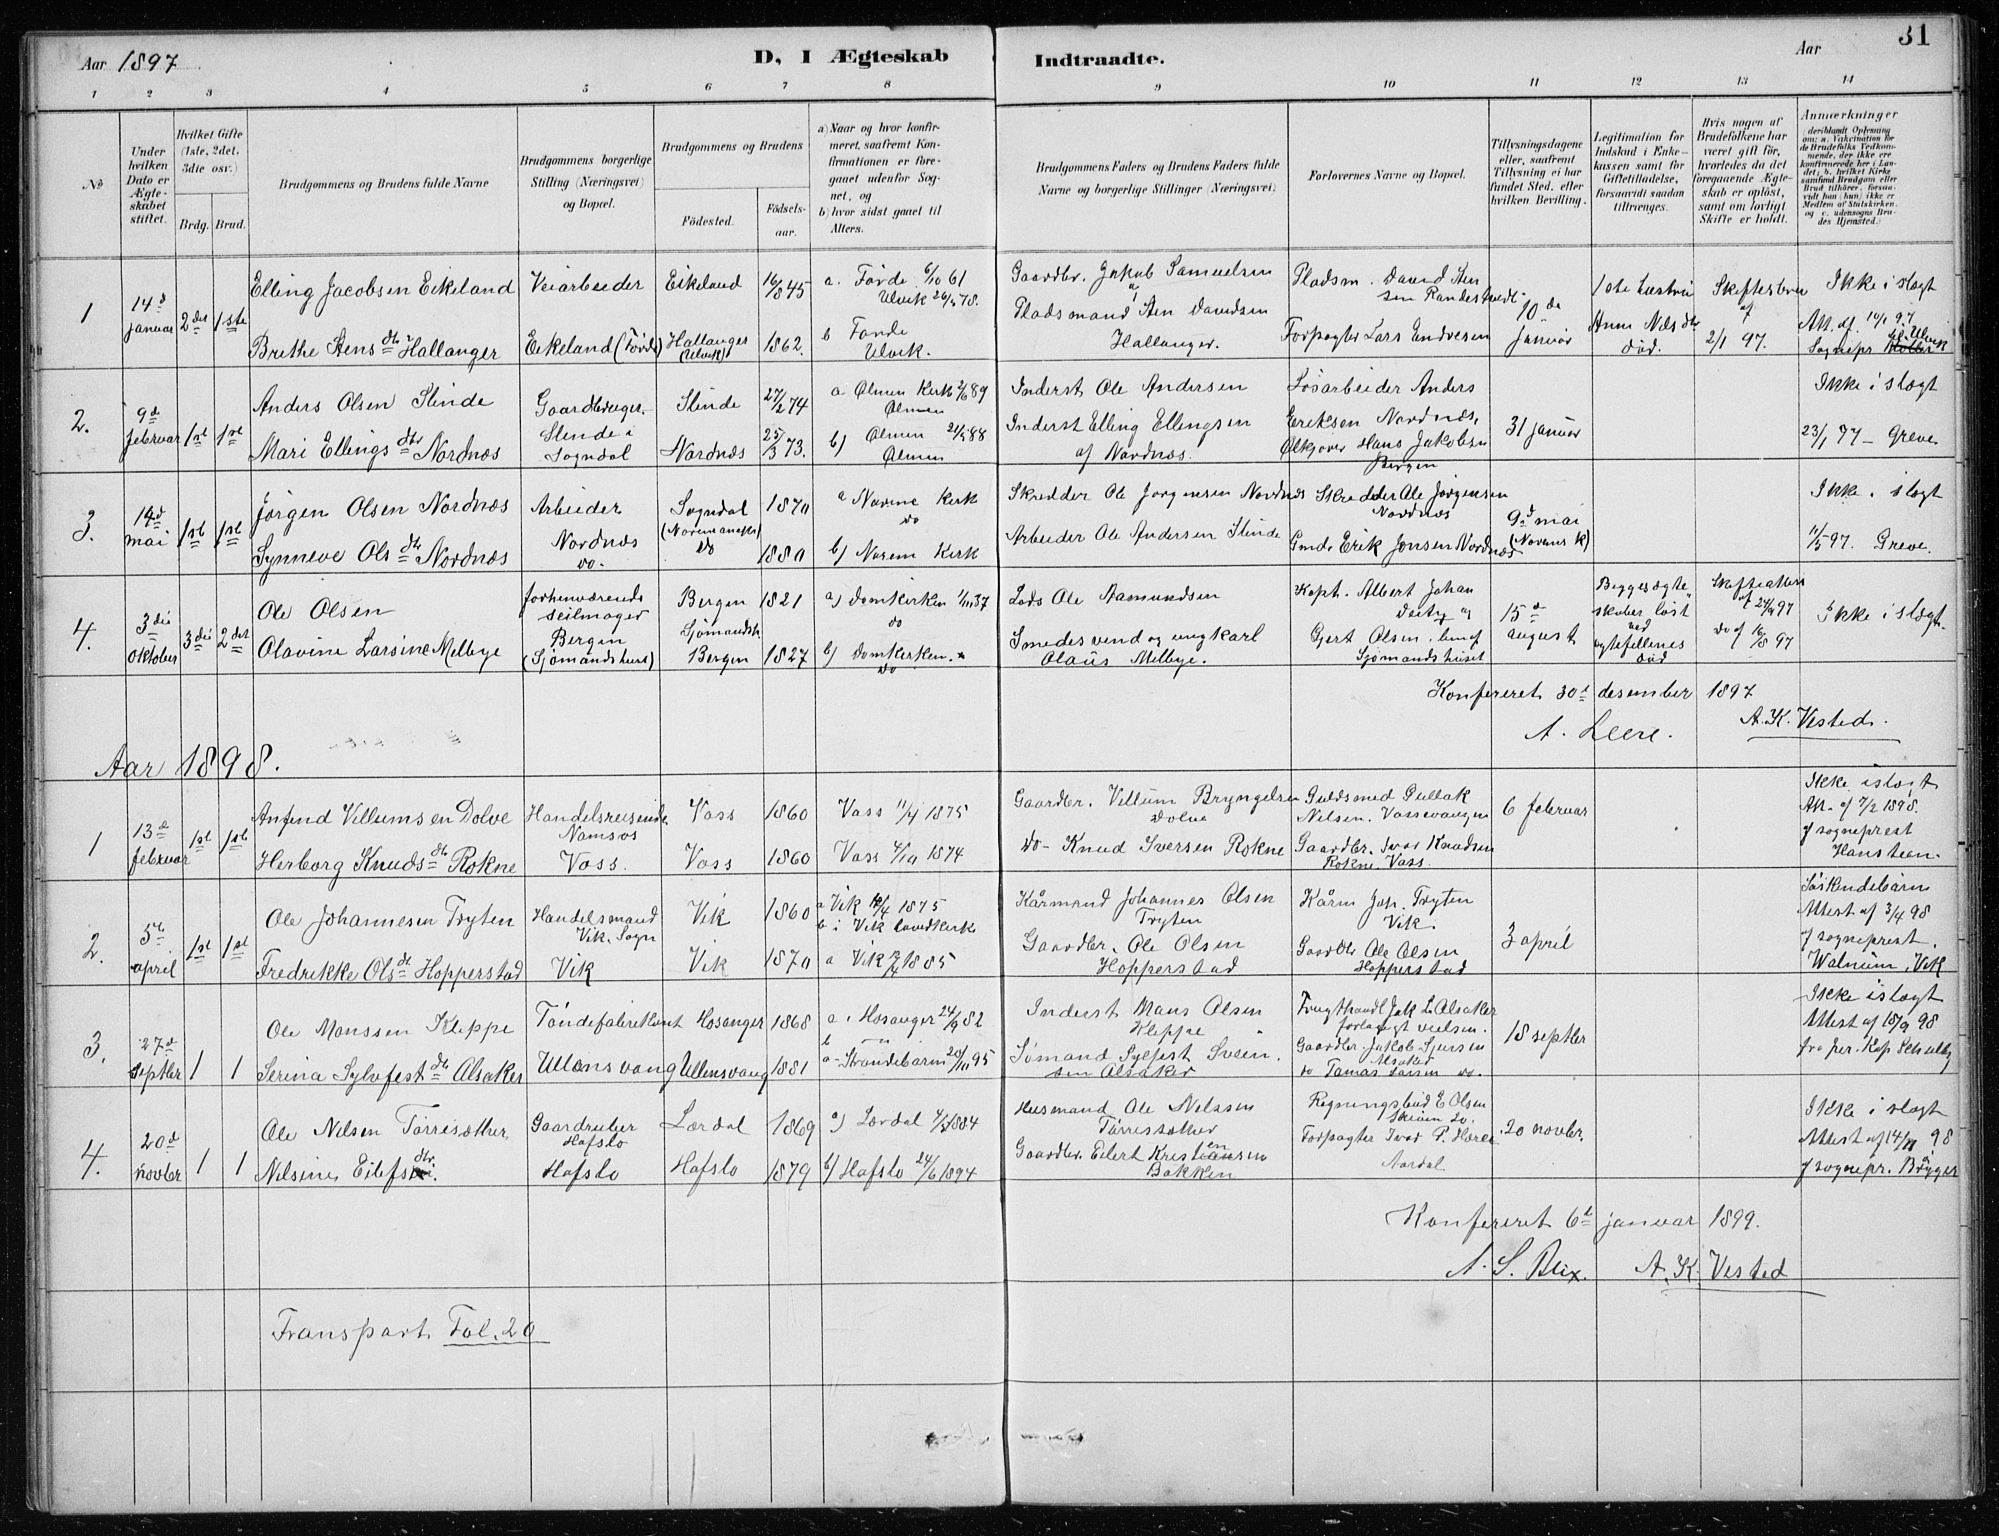 Aar 1897
D, I Ægteskab
Indtraadte.
Aar
31
1 2 3 4 5 6 7 8 9 10 11 12 13 14
No
Under hvilken Dato er Ægteskabet stiftet.
Hvilket Gifte (1ste, 2det, 3die osv.)
Brdg. Brud.
Brudgommens og Brudens fulde Navne
Brudgommens borgerlige Stilling (Næringsvei) og Bopæl.
Brudgommens og Brudens
Födested.
Födsels-aar.
a) Naar og hvor konfirmeret, saafremt Konfirmationen er foregaaet udenfor Sognet, og
b) hvor sidst gaaet til Alters.
Brudgommens Faders og Brudens Faders fulde Navne og borgerlige Stillinger (Næringsvei)
Forlovernes Navne og Bopæl.
Tillysningsdagene eller, saafremt Tillysning ei har fundet Sted, efter hvilken Bevilling.
Legitimation for Indskud i Enkekassen samt for Giftetilladelse, forsaavidt saadan tiltrænges.
Hvis nogen af Brudefolkene har været gift för, hvorledes da det foregaaende Ægteskab er oplöst, samt om lovligt Skifte er holdt.
Anmærkninger
(deriblandt Oplysning om: a. Vakcination for de Brudefolks Vedkommende, der ikke ere konfirmerede her i Landet; b. hvilket Kirkesamfund Brudgom eller Brud tilhörer, forsaavidt han (hun) ikke er Medlem af Statskirken, og c. udensogns Brudes Hjemsted.)
1
14d januar
2det 1ste
Elling Jacobsen Eikeland
Brithe Stensdtr Hallanger
Veiarbeider
Eikeland (Förde)
Eikeland 16/8 45
Hallanger (Ulvik) 1862.
a. Förde 6/10 61
Ulvik 26/5 78.
b Förde
Ulvik.
Gaardbr. Jakob Samuelsen
Pladsmand Sten Davidsen
Hallanger.
Forpagter Lars Endresen
10de januar
død.
Skifte
af
2/1 97.
Ikke i slægt
Att. af 14/1 97
Sognepr
2.
9d februar
1st 1st
Anders Olsen Slinde
Mari Ellingsdtr Nordnæs
Gaardbruger,
Slinde i
Sogndal
Slinde 27/2 74
Nordnæs 25/3 73.
a Olmen Kirk 2/6 89
Olmen
b) Olmen 21/5 88
Olmen
Inderst Ole Andersen
Inderst Elling Ellingsen
af Nordnæs.
Lösarbeider Anders
Eriksen Nordnæs,
Hans Jakobsen
Bergen
31 januar
Ikke i slægt
23/1 97 - Greve
3.
14d mai
1st 1st
Jörgen Olsen Nordnæs
Synneve Olsdtr Nordnæs
Arbeider
Nordnæs
do.
Sogndal 1870
Do 1880
a Norum Kirk
do
b) Norem Kirk
Skredder Ole Jorgensen Nordnæs
Arbeider Ole Andersen Slinde
Skredder Ole Jörgensen
Nordnæs
Gmd. Erik Jonsen Nordnæs
9d mai
(Norums K)
Ikke i slægt
11/5 97. Greve.
4.
3die oktober
3die 2det
Ole Olsen
Olavine Larsine Melbye
forhenværende
Seilmager
Bergen
(Sjömandshus)
Bergen 1821
Sjömandsh.
Bergen 1827
a) Domkirken 1/10 37
do
b) Domkirken.
do
Lods Ole Aamundsen
Smedesvend og ungkarl
Olaus Melbye.
Kapt. Albert Johan
og
Gjert Olsen. lem af
Sjömandshuset
15d august
Begges ægte-
skaber løst
ved
ægtefellenes
död
Skifteattest
af 24/9 97
do af 16/8 97
Ikke i slægt.
Konfereret 30d desember 1897
A. Leere. A. K. Vested.
Aar 1898.
1
13d februar
1st 1st
Anfind Villumsen Dolve
Herborg Knudsdtr Rokne
Handelsreisende
Namsos
Voss.
Voss 1860
Voss 1860
Voss 11/4 1875
Voss 4/10 1874
Gaardbr. Villum Bryngelsen
Dolve
do - Knud Iversen Rokne
Guldsmed Gullak
Nilsen. Vossevangen
Gaardbr. Ivar Knudsen
Rokne Voss.
6 februar
Ikke i slægt
Att. af 7/2 1898.
f sogneprest
Hansteen.
2.
5te april
1st 1st
Ole Johannesen Tryten
Fredrikke Olsdt Hopperstad
Handelsmand
Vik. Sogn
Vik
Vik 1860
Vik 1870
a Vik 1875
b i Vik hovedkirke
a Vik 1885
Kårmand Johannes Olsen
Tryten
Gaardbr. Ole Olsen
Hopperstad
Kårm Joh. Tryten
Vik.
Gaardbr Ole Olsen
Hopperstad
3 april
Söskendebarn
Attest af 3/4 98
f sogneprest.
Walnum, Vik
3.
27d septbr
1 1
Ole Monssen Kleppe
Serina Sylvfestdtr Alsaker
Töndefabrikant
Ullensvang
Hosanger 1868
Ullensvang 1881
a. Hosanger 24/9 82
b
a - Strandebarm 20/10 95
Inderst Mons Olsen
Kleppe
Sømand Sylfest Svein-
sen Alsaker
Frugthandl Jak L Alsaker
Gaardbr. Jakob
Alsaker
do Tomas Larsen do.
18 septbr
Ikke i slægt
Attest af 18/9 98
fra per. Kap
4.
20d novbr
1 1
Ole Nilsen Torrisæther
Nilsine Eilefsdtr.
Gaardruber
Hafslo
Hafslo
Lærdal 1869
Hafslo 1879
a) Lærdal 1884
b) Hafslo 24/6 1894
Husmand Ole Nilssen
Torrisæther
Gaardbr. Eilert Kristiansen
Bakken
Regningsbud E Olsen
Forpagter Ivar P. Heree
Aardal
20 novbr.
Ikke i slægt
Attest af 14/11 98
f sognepr. Brygger
Konfereret 6d januar 1899.
A. S. Blix. A. K. Vested
Transport Fol. 20